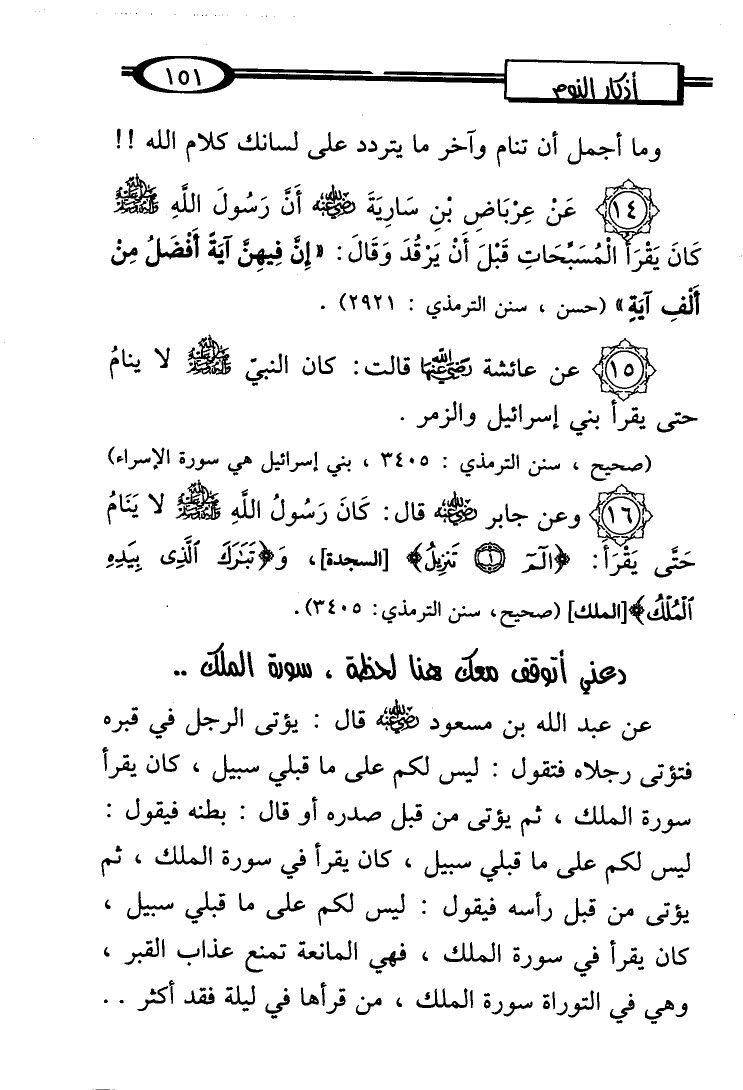 أذكار النوم
١٥١
وما أجمل أن تنام وآخر ما يتردد على لسانك كلام الله !!
١٤ عَنْ عِرْبَاضِ بْنِ سَارِيَةَ رضي الله عنه أَنَّ رَسُولَ اللَّهِ ﷺ
كَانَ يَقْرَأُ الْمُسَبِّحَاتِ قَبْلَ أَنْ يَرْقُدَ وَقَالَ : «إِنَّ فِيهِنَّ آيَةً أَفْضَلُ مِنْ
أَلْفِ آيَةٍ» (حسن ، سنن الترمذي : ٢٩٢١) .
١٥ عن عائشة رضي الله عنها قالت : كان النبيّ ﷺ لا ينامُ
حتى يقرأ بني إسرائيل والزمر .
(صحيح ، سنن الترمذي : ٣٤٠٥ ، بني إسرائيل هي سورة الإسراء)
١٦ وعن جابر رضي الله عنه قال : كَانَ رَسُولُ اللَّهِ ﷺ لا يَنَامُ
حَتَّى يَقْرَأَ : ﴿الٓمٓ ١ تَنزِيلُ﴾ [السجدة]، وَ﴿تَبَٰرَكَ ٱلَّذِى بِيَدِهِ
ٱلْمُلْكُ﴾[الملك] (صحيح، سنن الترمذي: ٣٤٠٥).
دعني أتوقف معك هنا لحظة ، سورة الملك ..
عن عبد الله بن مسعود رضي الله عنه قال : يؤتى الرجل في قبره
فتؤتى رجلاه فتقول : ليس لكم على ما قبلي سبيل ، كان يقرأ
سورة الملك ، ثم يؤتى من قبل صدره أو قال : بطنه فيقول :
ليس لكم على ما قبلي سبيل ، كان يقرأ في سورة الملك ، ثم
يؤتى من قبل رأسه فيقول : ليس لكم على ما قبلي سبيل ،
كان يقرأ في سورة الملك ، فهي المانعة تمنع عذاب القبر ،
وهي في التوراة سورة الملك ، من قرأها في ليلة فقد أكثر . .